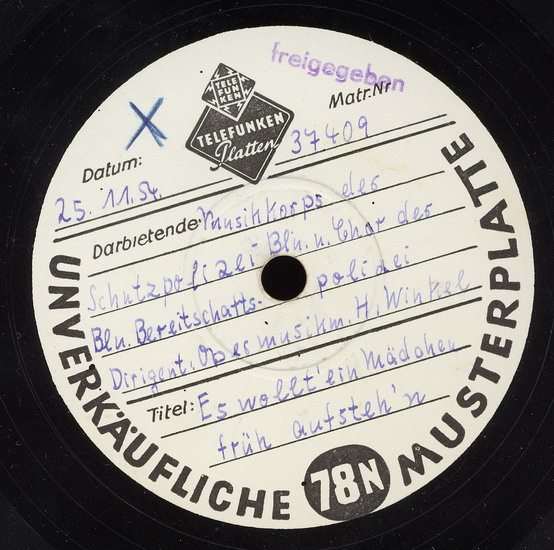 freigegeben
TELE
FUN
KEN
TELEFUNKEN
Platten
Matr.Nr
37409
Datum:
25. 11. 54.
Darbietende: Musikkorps der
Schutzpolizei Bln. u. Chor der
Bln. Bereitschafts- polizei
Dirigent. musikm. H. Winkel
Titel: Es wollt' ein Mädchen
früh aufsteh'n
UNVERKÄUFLICHE 78N MUSTERPLATTE